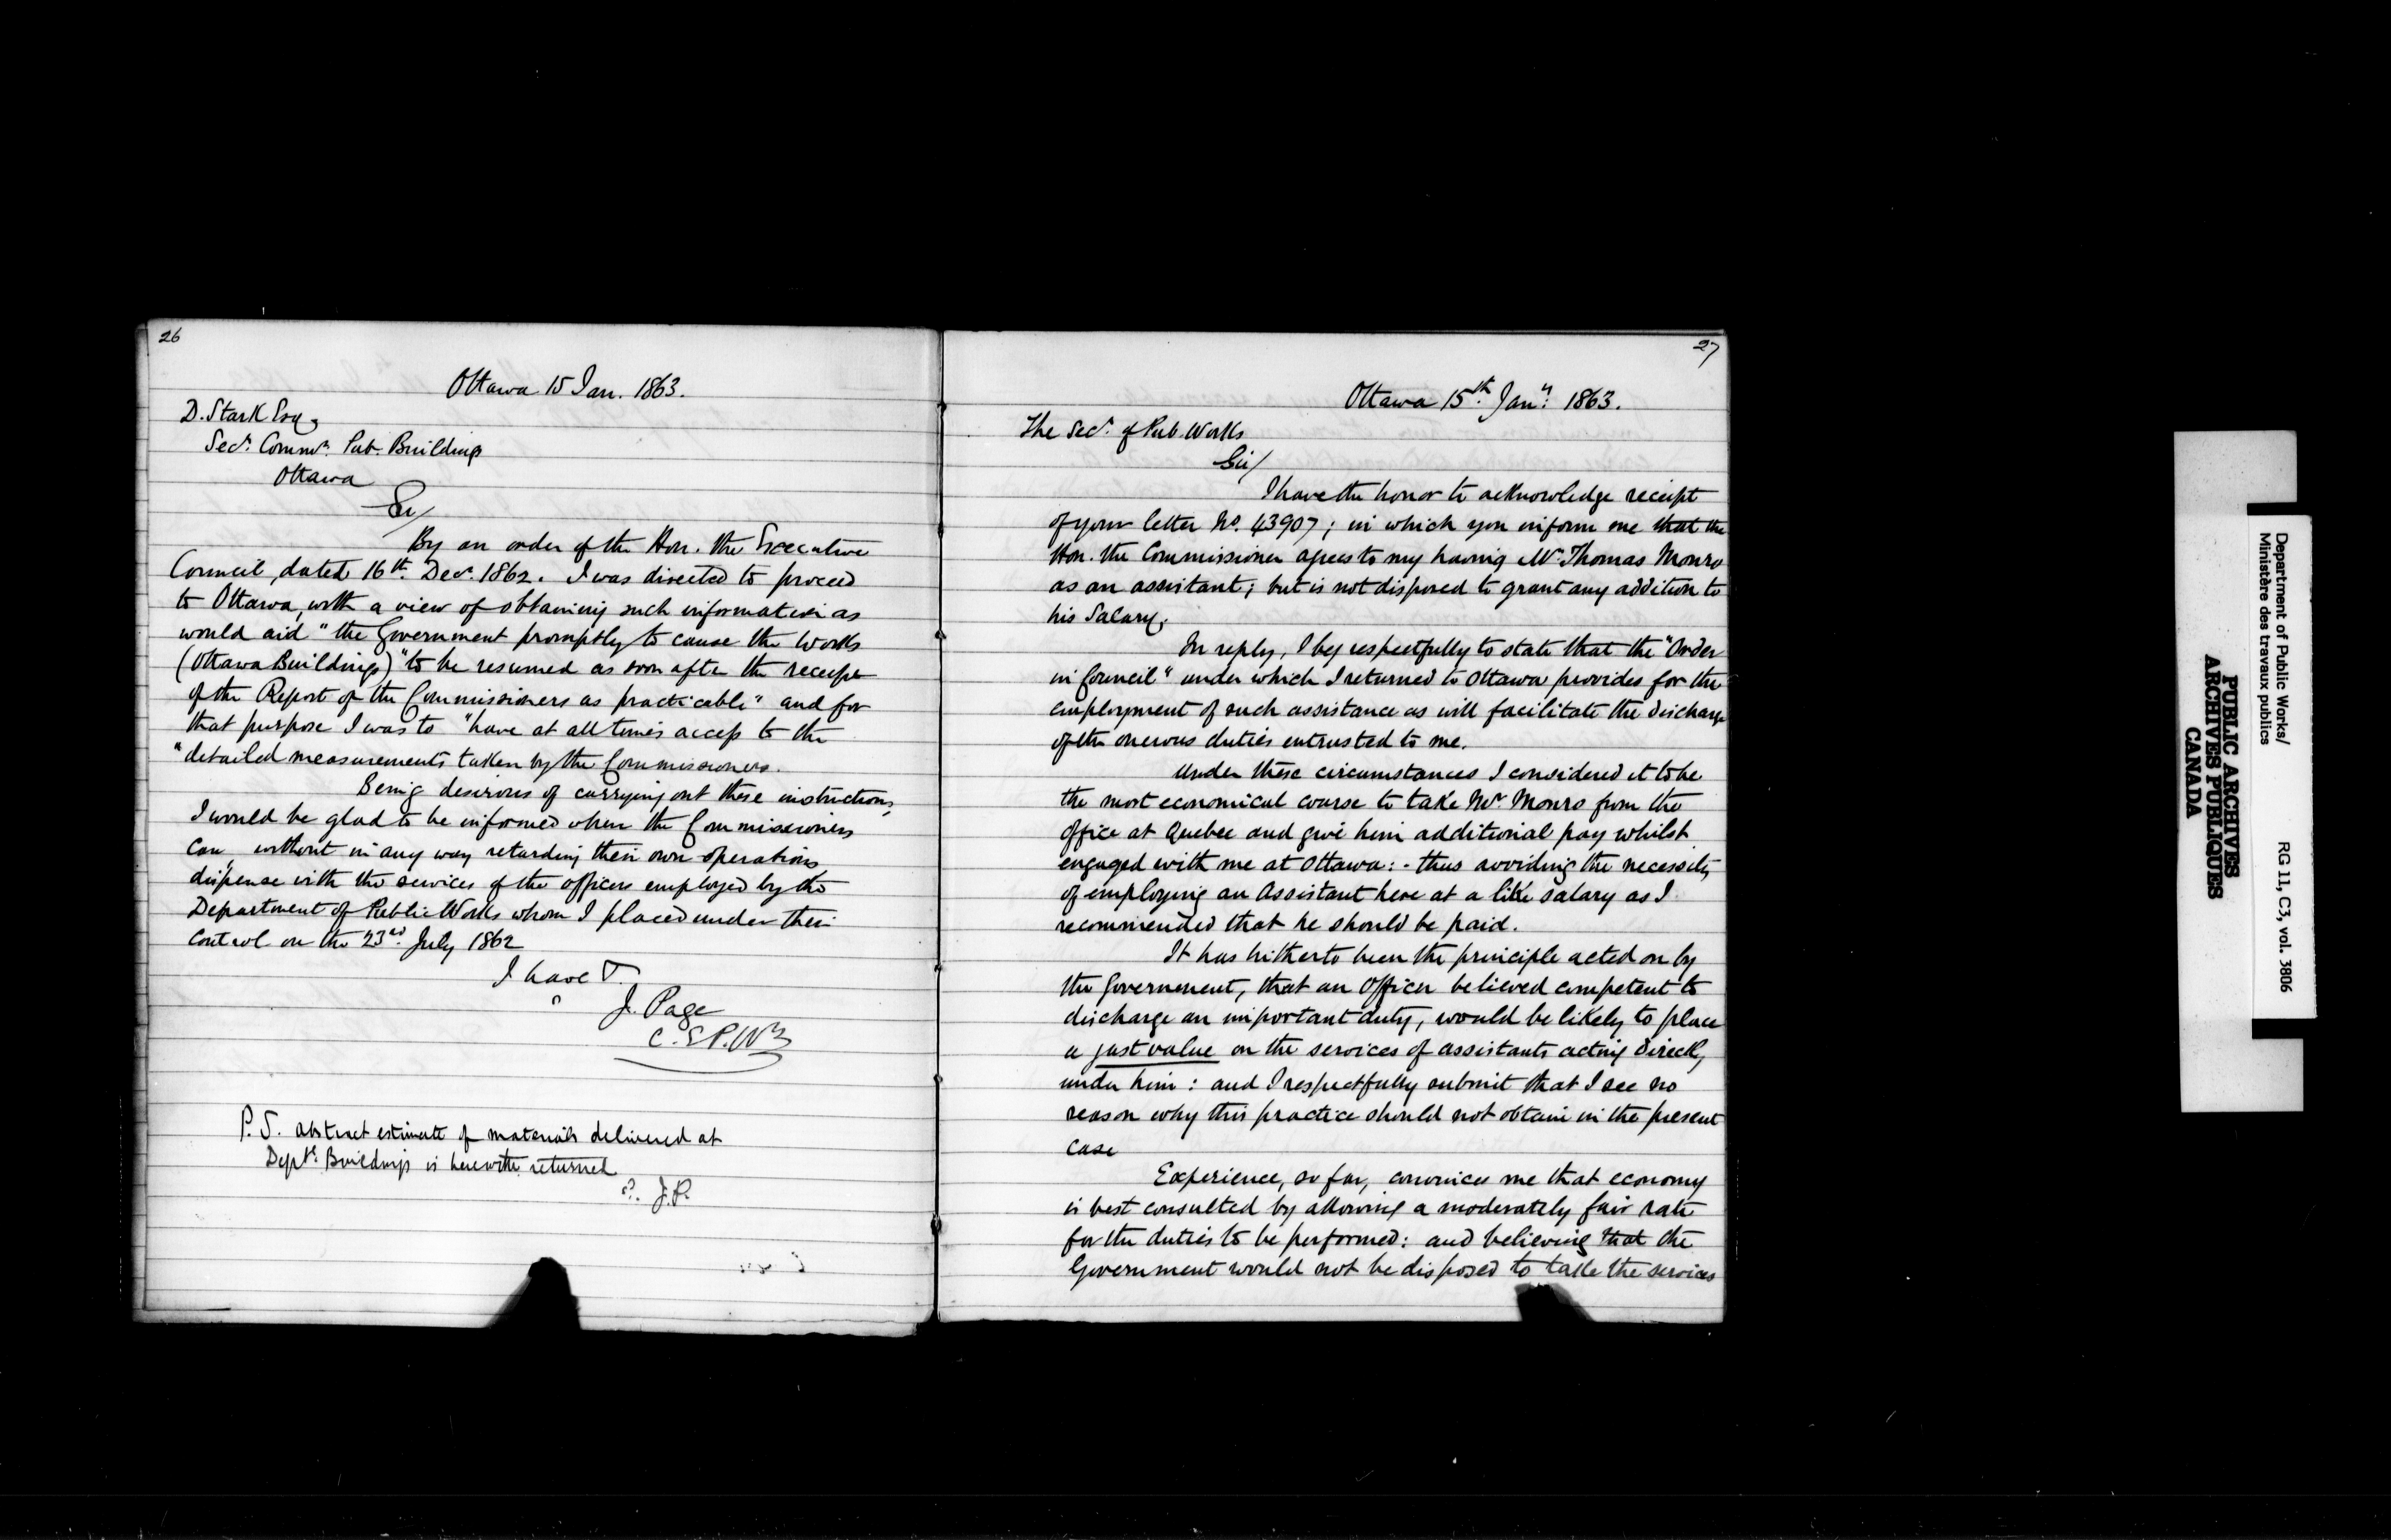 26
Ottawa 15 Jan. 1863.
D. Stark Esq.
Secy. Commrs. Pub. Buildings
Ottawa
Sir/
By an order of the Hon. the Executive
Council, dated 16th. Decr. 1862. I was directed to proceed
to Ottawa, with a view of obtaining such information as
would aid "the Government promptly to cause the works
(Ottawa Buildings) "to be resumed as soon after the receipt
of the Report of the Commissioners as practicable" and for
that purpose I was to "have at all times access to the
"detailed measurements taken by the Commissioners.
Being desirous of carrying out these instructions,
I would be glad to be informed when the Commissioners
can, without in any way retarding their own operations
dispense with the services of the officers employed by the
Department of Public Works whom I placed under their
control on the 23rd. July 1862
I have
J. Page
C.E.P.Wks
P.S. abstract estimate of materials delivered at
Deptl. Buildings is herewith returned
J.P.
27
Ottawa 15th. Jany. 1863.
The Secy. of Pub. Works
Sir/
I have the honor to acknowledge receipt
of your letter No. 43907; in which you inform me that the
Hon. the Commissioner agrees to my having Mr. Thomas Monro
as an assistant; but is not disposed to grant any addition to
his Salary.
In reply, I beg respectfully to state that the "Order
in Council" under which I returned to Ottawa provides for the
employment of such assistance as will facilitate the discharge
of the onerous duties entrusted to me.
Under these circumstances I considered it to be
the most economical course to take Mr. Monro from the
office at Quebec and give him additional pay whilst
engaged with me at Ottawa: - thus avoiding the necessity
of employing an Assistant here at a like salary as I
recommended that he should be paid.
It has hitherto been the principle acted on by
the Government, that an Officer believed competent to
discharge an important duty, would be likely to place
a just value on the services of assistants acting directly
under him: and I respectfully submit that I see no
reason why this practice should not obtain in the present
case
Experience, so far, convinces me that economy
is best consulted by allowing a moderately fair rate
for the duties to be performed: and believing that the
Government would not be disposed to take the services
Department of Public Works/
Ministère des travaux publics
RG 11, C3, vol. 3806
PUBLIC ARCHIVES
ARCHIVES PUBLIQUES
CANADA